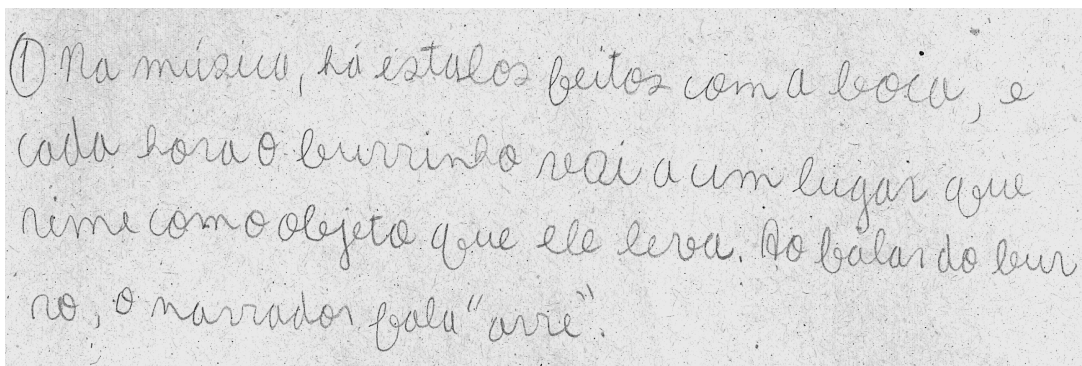 ① Na música, há estalos feitos com a boca, e
cada hora o burrinho vai a um lugar que
rime com o objeto que ele leva. Ao falar do bur
ro, o narrador fala "arre".